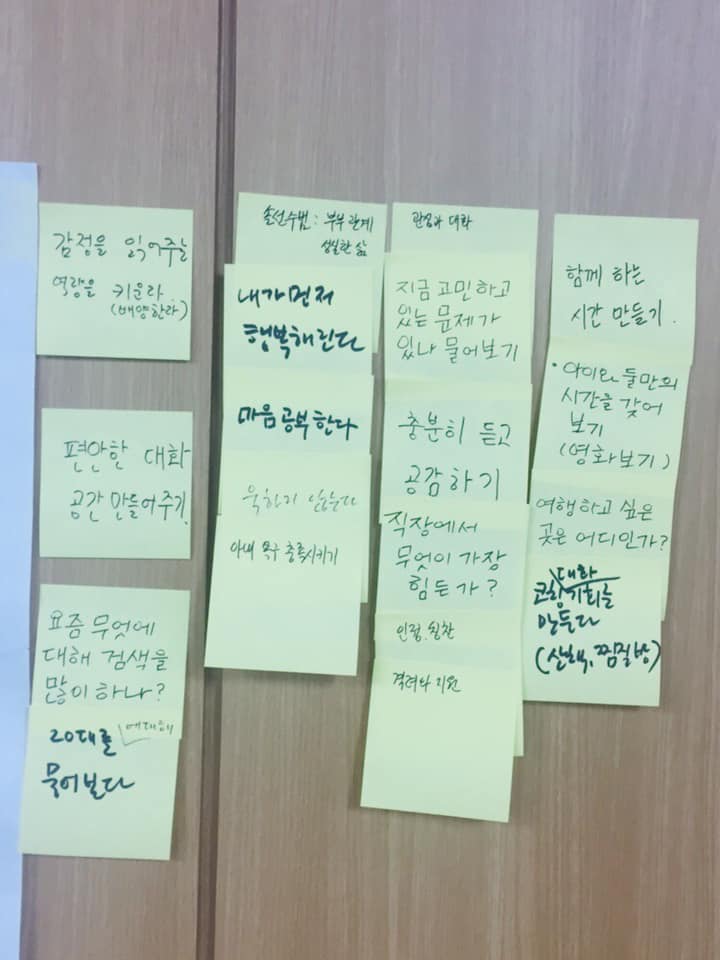 감정을 읽어주는
역량을 키운다.
(배양한다)
편안한 대화
공간 만들어주기
요즘 무엇에
대해 검색을
많이 하나?
20대를
물어보다
솔선수범 : 부부관계
성실한 삶
내가 먼저
행복해진다
마음공부한다
욱하지 않는다
아내 욕구 충족시키기
관심과 대화
지금 고민하고
있는 문제가
있나 물어보기
충분히 듣고
공감하기
직장에서
무엇이 가장
힘든가?
인정, 칭찬
격려와 지원
함께 하는
시간 만들기.
• 아이와 둘만의
시간을 갖어
보기
(영화보기)
여행하고 싶은
곳은 어디인가?
대화
만든다
(산책, 찜질방)